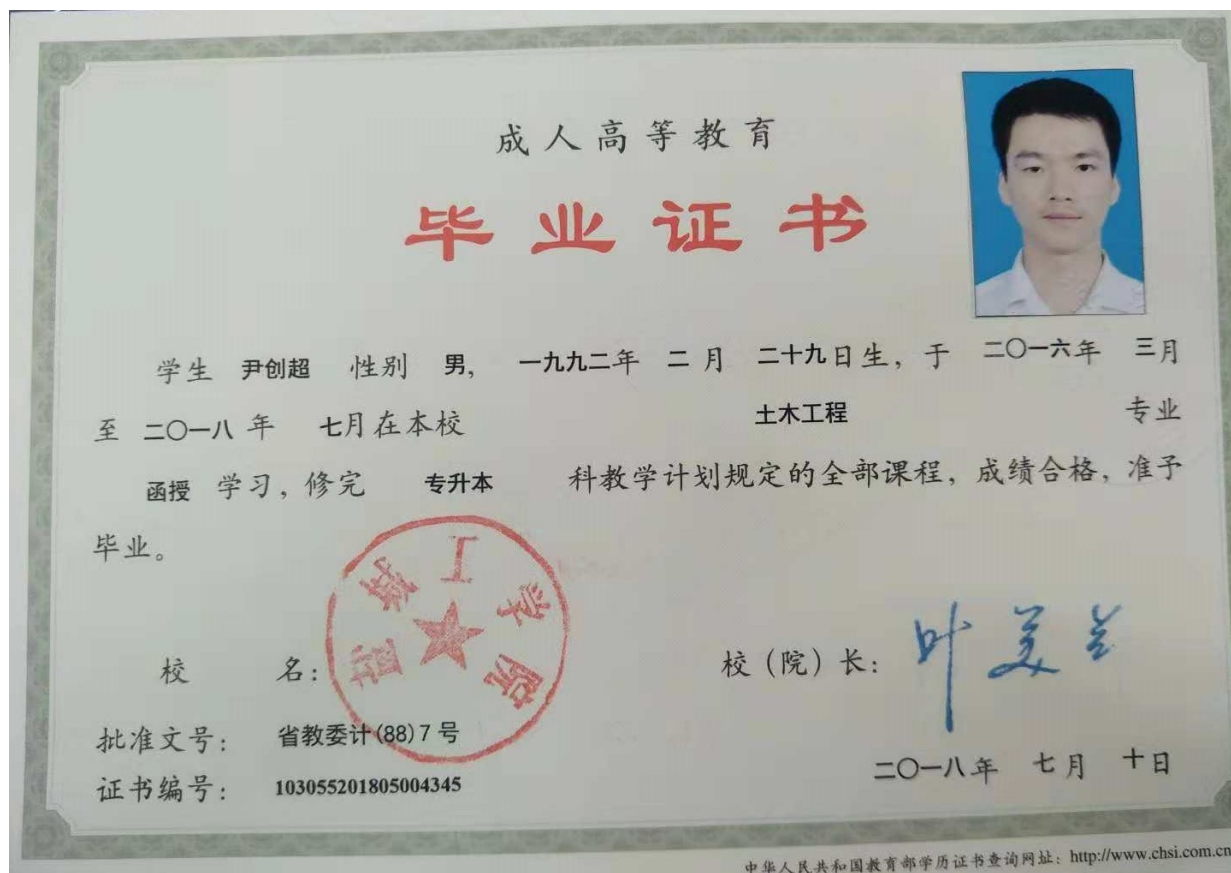 成人高等教育
毕业证书
学生 尹创超 性别 男， 一九九二年 二月 二十九日生，于 二〇一六年 三月
至 二〇一八年 七月在本校 土木工程 专业
函授 学习，修完 专升本 科教学计划规定的全部课程，成绩合格，准予
毕业。
工学院
校 名：
校（院）长：
批准文号： 省教委计(88)7号
二〇一八年 七月 十日
证书编号： 103055201805004345
中华人民共和国教育部学历证书查询网址：http://www.chsi.com.cn